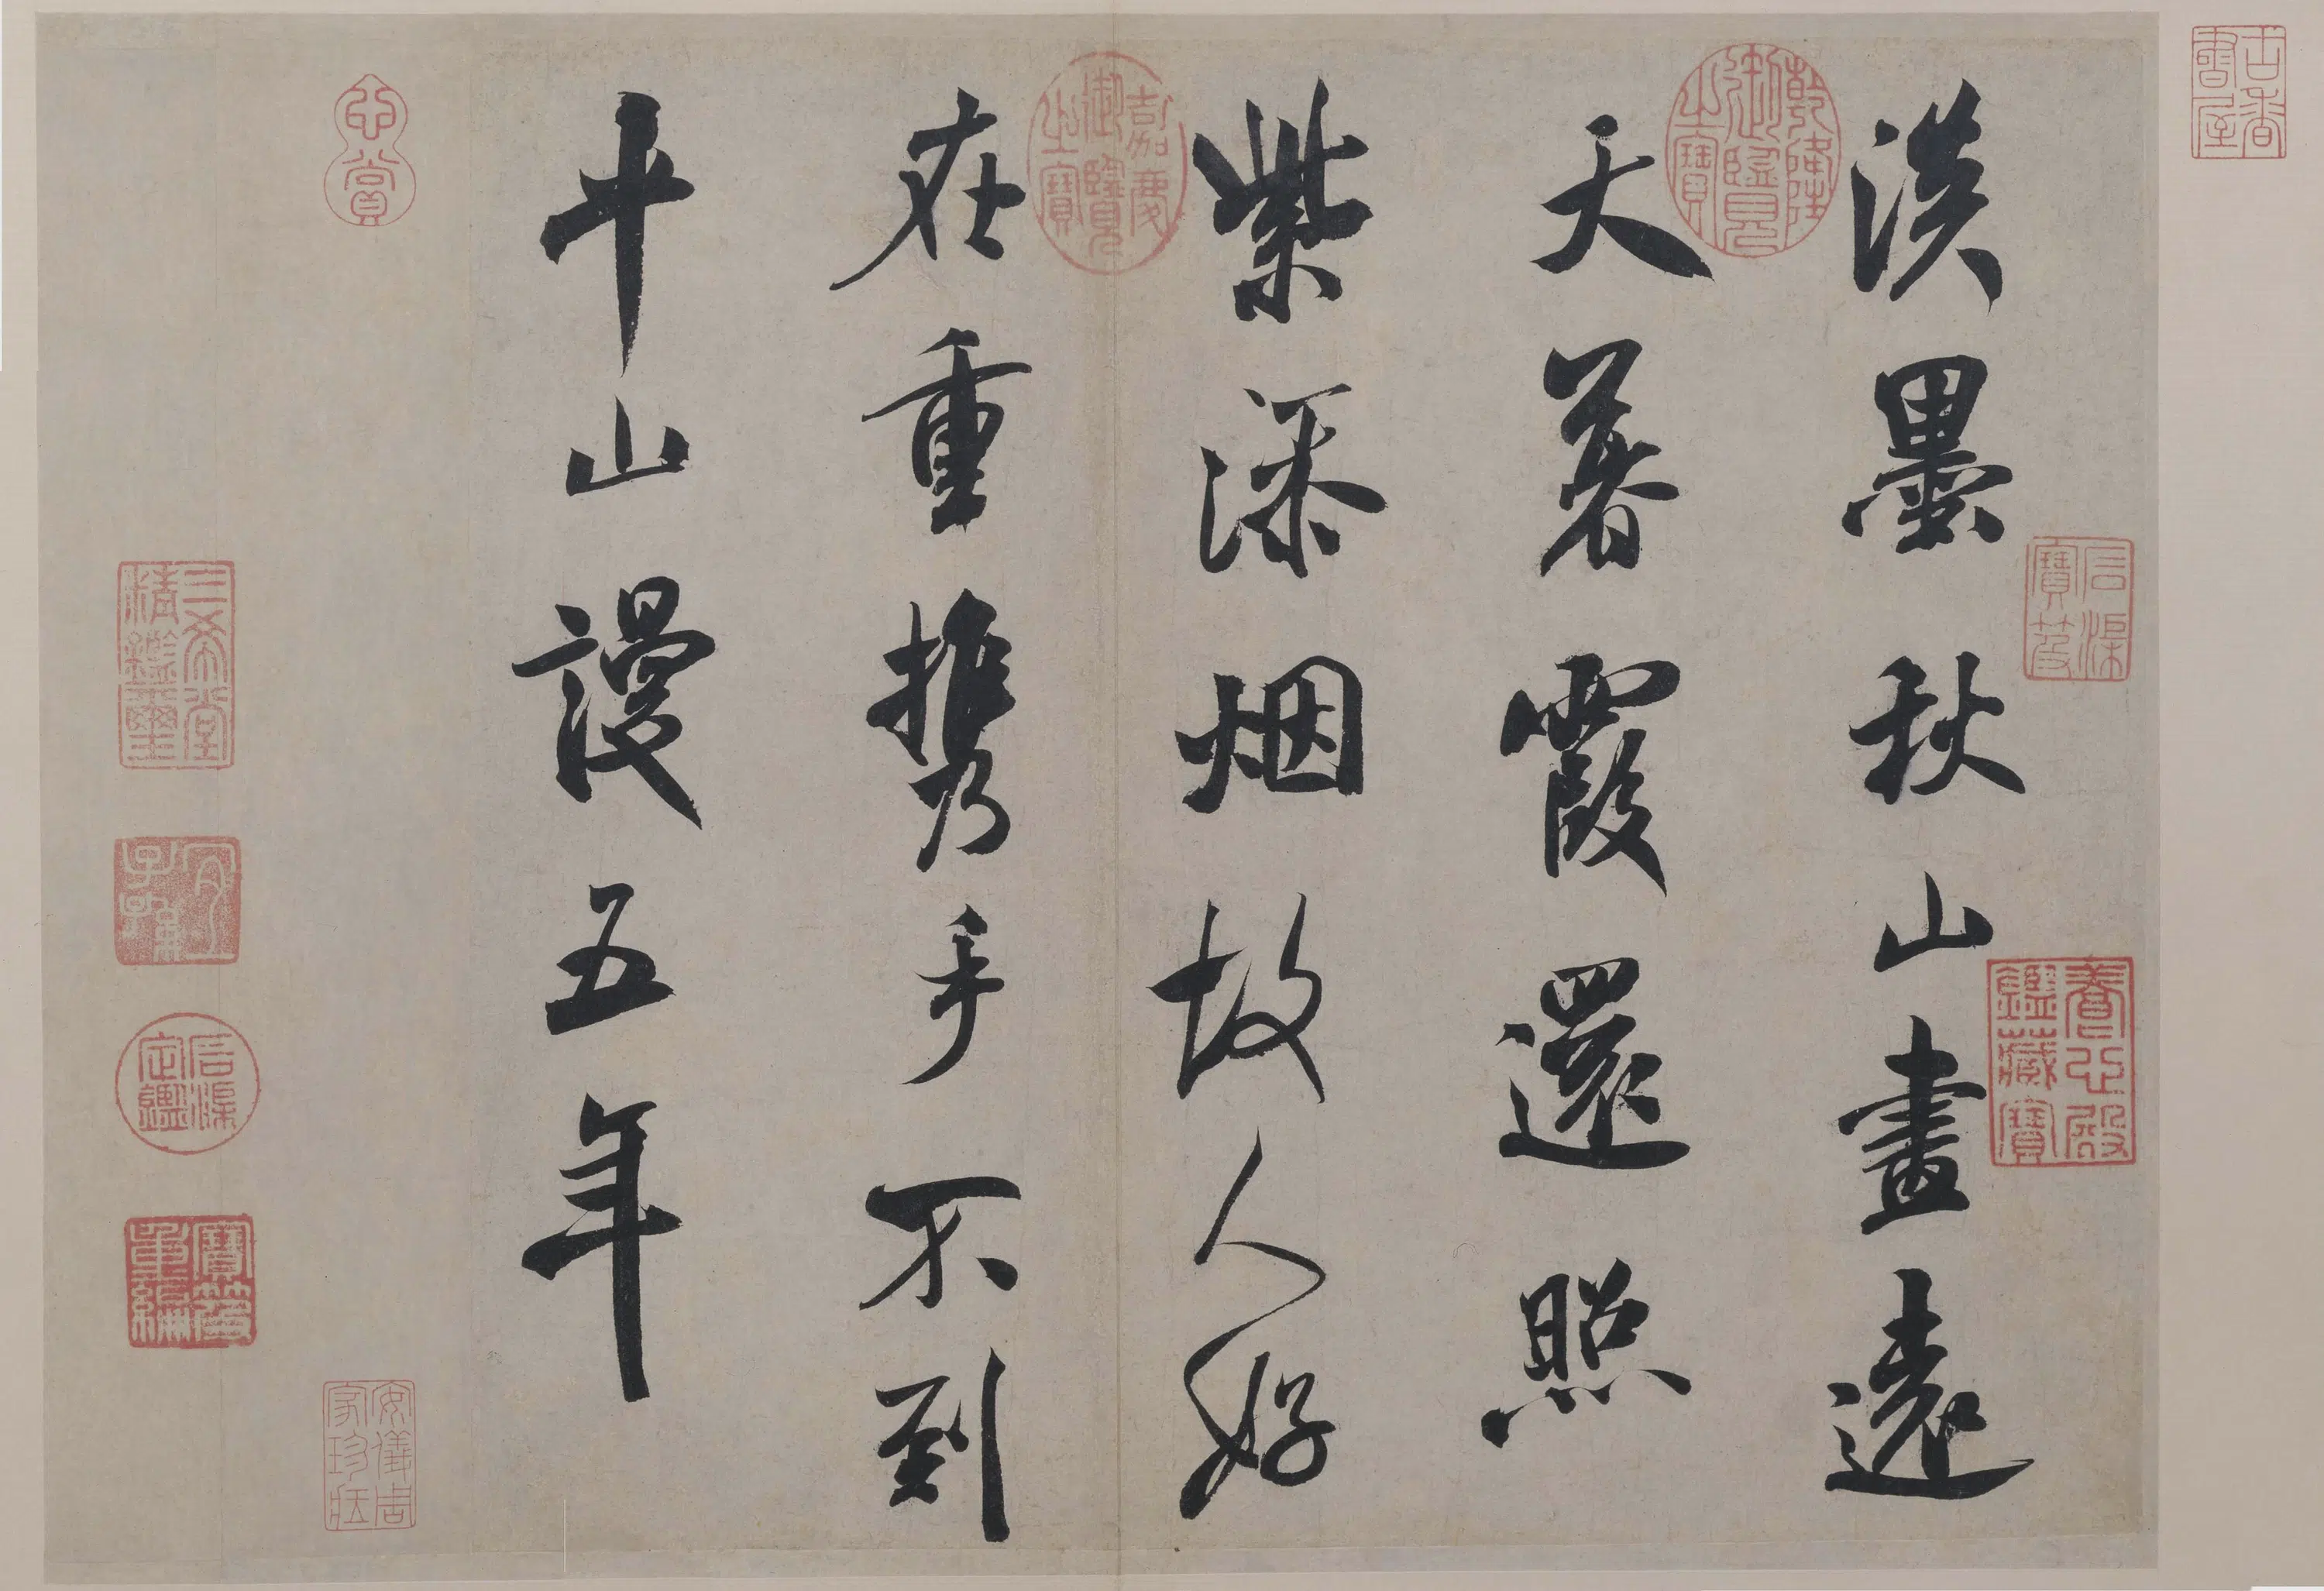 古香書屋
石渠寶笈
養心殿鑑藏寶
淡墨秋山畫遠
乾隆御覽之寶
天暮霞還照
紫添烟故人好
嘉慶御覽之寶
在重携手不到
平山謾五年
心賞
安儀周家珍藏
三希堂精鑑璽
宜子孫
石渠定鑑
寶笈重編